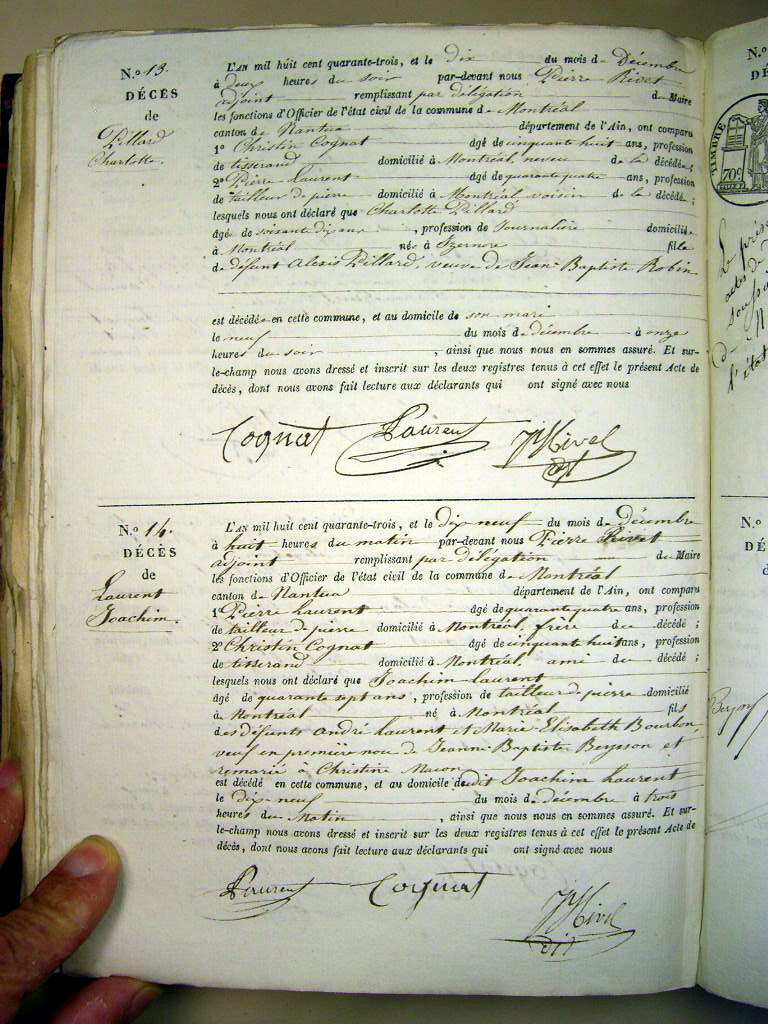 N.º 13.
DÉCÈS
de
Pillard
Charlotte.
L'AN mil huit cent quarante-trois, et le dix du mois de Décembre
à deux heures du soir par-devant nous Pierre Rivet
adjoint remplissant par délégation de Maire
les fonctions d'Officier de l'état civil de la commune de Montréal
canton de Nantua département de l'Ain, ont comparu
1º Christin Cognat âgé de cinquante huit ans, profession
de tisserand domicilié à Montréal neveu de la décédée ;
2º Pierre Laurent âgé de quarante quatre ans, profession
de tailleur de pierre domicilié à Montréal, voisin de la décédée ;
lesquels nous ont déclaré que Charlotte Pillard
âgée de soixante dix ans, profession de Journalière domiciliée
à Montréal née à Izernore fille
de défunt Alexis Pillard, veuve de Jean Baptiste Robin
est décédée en cette commune, et au domicile de son mari
le neuf du mois de décembre à onze
heures du soir, ainsi que nous nous en sommes assuré. Et sur-
le-champ nous avons dressé et inscrit sur les deux registres tenus à cet effet le présent Acte de
décès, dont nous avons fait lecture aux déclarants qui ont signé avec nous
Cognat Laurent
N.º 14.
DÉCÈS
de
Laurent
Joachim.
L'AN mil huit cent quarante-trois, et le dix neuf du mois de Décembre
à huit heures du matin par-devant nous Pierre Rivet
adjoint remplissant par délégation de Maire
les fonctions d'Officier de l'état civil de la commune de Montréal
canton de Nantua département de l'Ain, ont comparu
1º Pierre Laurent âgé de quarante quatre ans, profession
de tailleur de pierre domicilié à Montréal, frère du décédé ;
2º Christin Cognat âgé de cinquante huit ans, profession
de tisserand domicilié à Montréal, ami du décédé ;
lesquels nous ont déclaré que Joachim Laurent
âgé de quarante sept ans, profession de tailleur de pierre domicilié
à Montréal né à Montréal fils
des défunts andré Laurent et Marie Elisabeth Bourbon,
veuf en première noce de Jeanne Baptiste Bergeson et
remarié à Christine Macon
est décédé en cette commune, et au domicile dudit Joachim Laurent
le dix neuf du mois de décembre à trois
heures du Matin, ainsi que nous nous en sommes assuré. Et sur-
le-champ nous avons dressé et inscrit sur les deux registres tenus à cet effet le présent Acte de
décès, dont nous avons fait lecture aux déclarants qui ont signé avec nous
Laurent Cognat
N.º
DÉ
TIMBRE
70c
N.º
DÉ